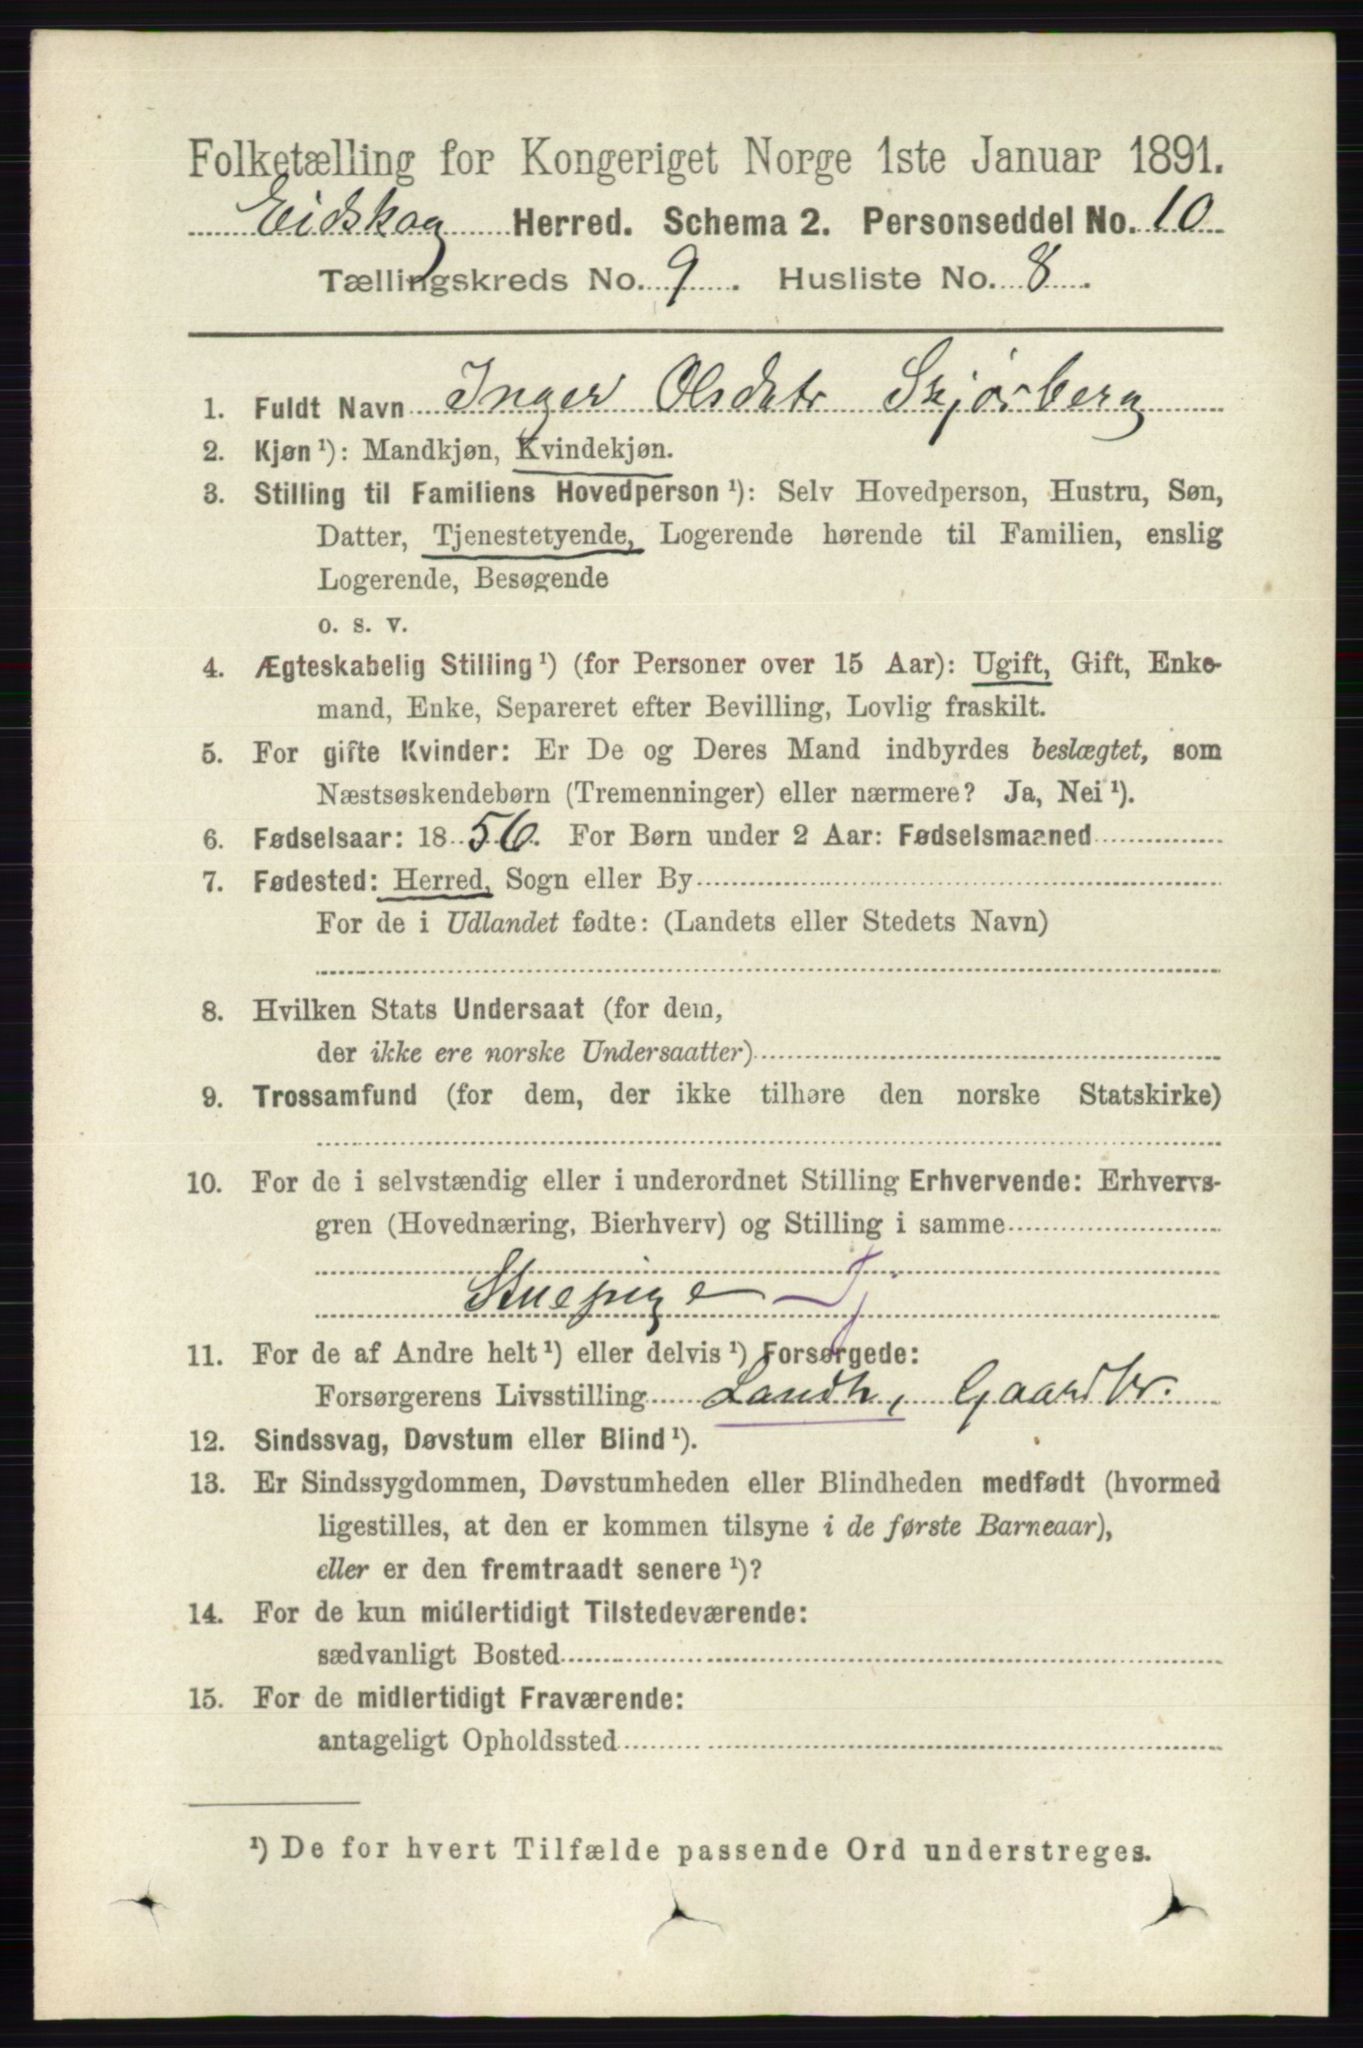 Folketælling for Kongeriget Norge 1ste Januar 1891.
Eidskog Herred. Schema 2. Personseddel No. 10
Tællingskreds No. 9. Husliste No. 8.
1. Fuldt Navn Inger Olsdatr Skjørberg
2. Kjøn¹): Mandkjøn, Kvindekjøn.
3. Stilling til Familiens Hovedperson¹): Selv Hovedperson, Hustru, Søn,
Datter, Tjenestetyende, Logerende hørende til Familien, enslig
Logerende, Besøgende
o. s. v.
4. Ægteskabelig Stilling¹) (for Personer over 15 Aar): Ugift, Gift, Enke-
mand, Enke, Separeret efter Bevilling, Lovlig fraskilt.
5. For gifte Kvinder: Er De og Deres Mand indbyrdes beslægtet, som
Næstsøskendebørn (Tremenninger) eller nærmere? Ja, Nei¹).
6. Fødselsaar: 1856. For Børn under 2 Aar: Fødselsmaaned
7. Fødested: Herred, Sogn eller By
For de i Udlandet fødte: (Landets eller Stedets Navn)
8. Hvilken Stats Undersaat (for dem,
der ikke ere norske Undersaatter)
9. Trossamfund (for dem, der ikke tilhøre den norske Statskirke)
10. For de i selvstændig eller i underordnet Stilling Erhvervende: Erhvervs-
gren (Hovednæring, Bierhverv) og Stilling i samme
Stuepige - T
11. For de af Andre helt¹) eller delvis¹) Forsørgede:
Forsørgerens Livsstilling Landh, Gaardbr.
12. Sindssvag, Døvstum eller Blind¹).
13. Er Sindssygdommen, Døvstumheden eller Blindheden medfødt (hvormed
ligestilles, at den er kommen tilsyne i de første Barneaar),
eller er den fremtraadt senere¹)?
14. For de kun midlertidigt Tilstedeværende:
sædvanligt Bosted
15. For de midlertidigt Fraværende:
antageligt Opholdssted
¹) De for hvert Tilfælde passende Ord understreges.